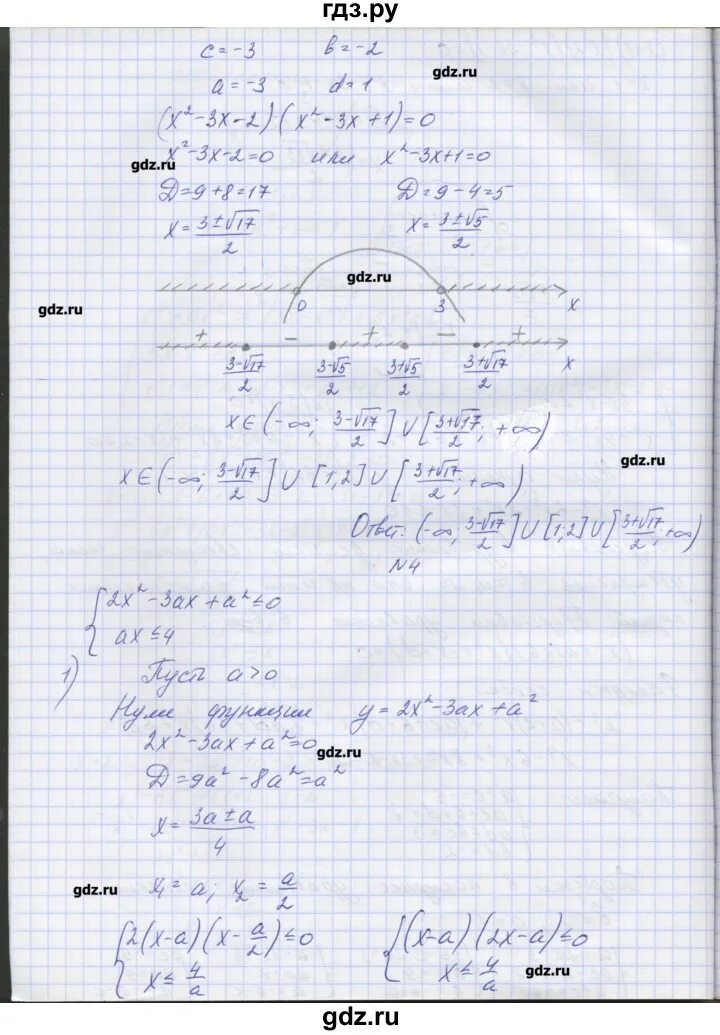 гдз.ру
c = -3 b = -2
gdz.ru
a = -3 d = 1
(x² - 3x - 2)(x² - 3x + 1) = 0
x² - 3x - 2 = 0 или x² - 3x + 1 = 0
gdz.ru
D = 9 + 8 = 17 D = 9 - 4 = 5
x = (3 ± √17)/2 x = (3 ± √5)/2
gdz.ru
0 3 x
gdz.ru
+ - + - +
(3-√17)/2 (3-√5)/2 (3+√5)/2 (3+√17)/2 x
x ∈ (-∞; (3-√17)/2] ∪ [(3+√17)/2; +∞)
gdz.ru
x ∈ (-∞; (3-√17)/2] ∪ [1,2] ∪ [(3+√17)/2; +∞)
Ответ: (-∞; (3-√17)/2] ∪ [1;2] ∪ [(3+√17)/2; +∞)
gdz.ru
N4
{2x² - 3ax + a² ≤ 0
ax ≤ 4
1) Пусть a > 0
Нули функции y = 2x² - 3ax + a²
2x² - 3ax + a² = 0
gdz.ru
D = 9a² - 8a² = a²
x = (3a ± a)/4
gdz.ru
x₁ = a; x₂ = a/2
{2(x-a)(x - a/2) ≤ 0 {(x-a)(2x-a) ≤ 0
x ≤ 4/a x ≤ 4/a
gdz.ru
gdz.ru